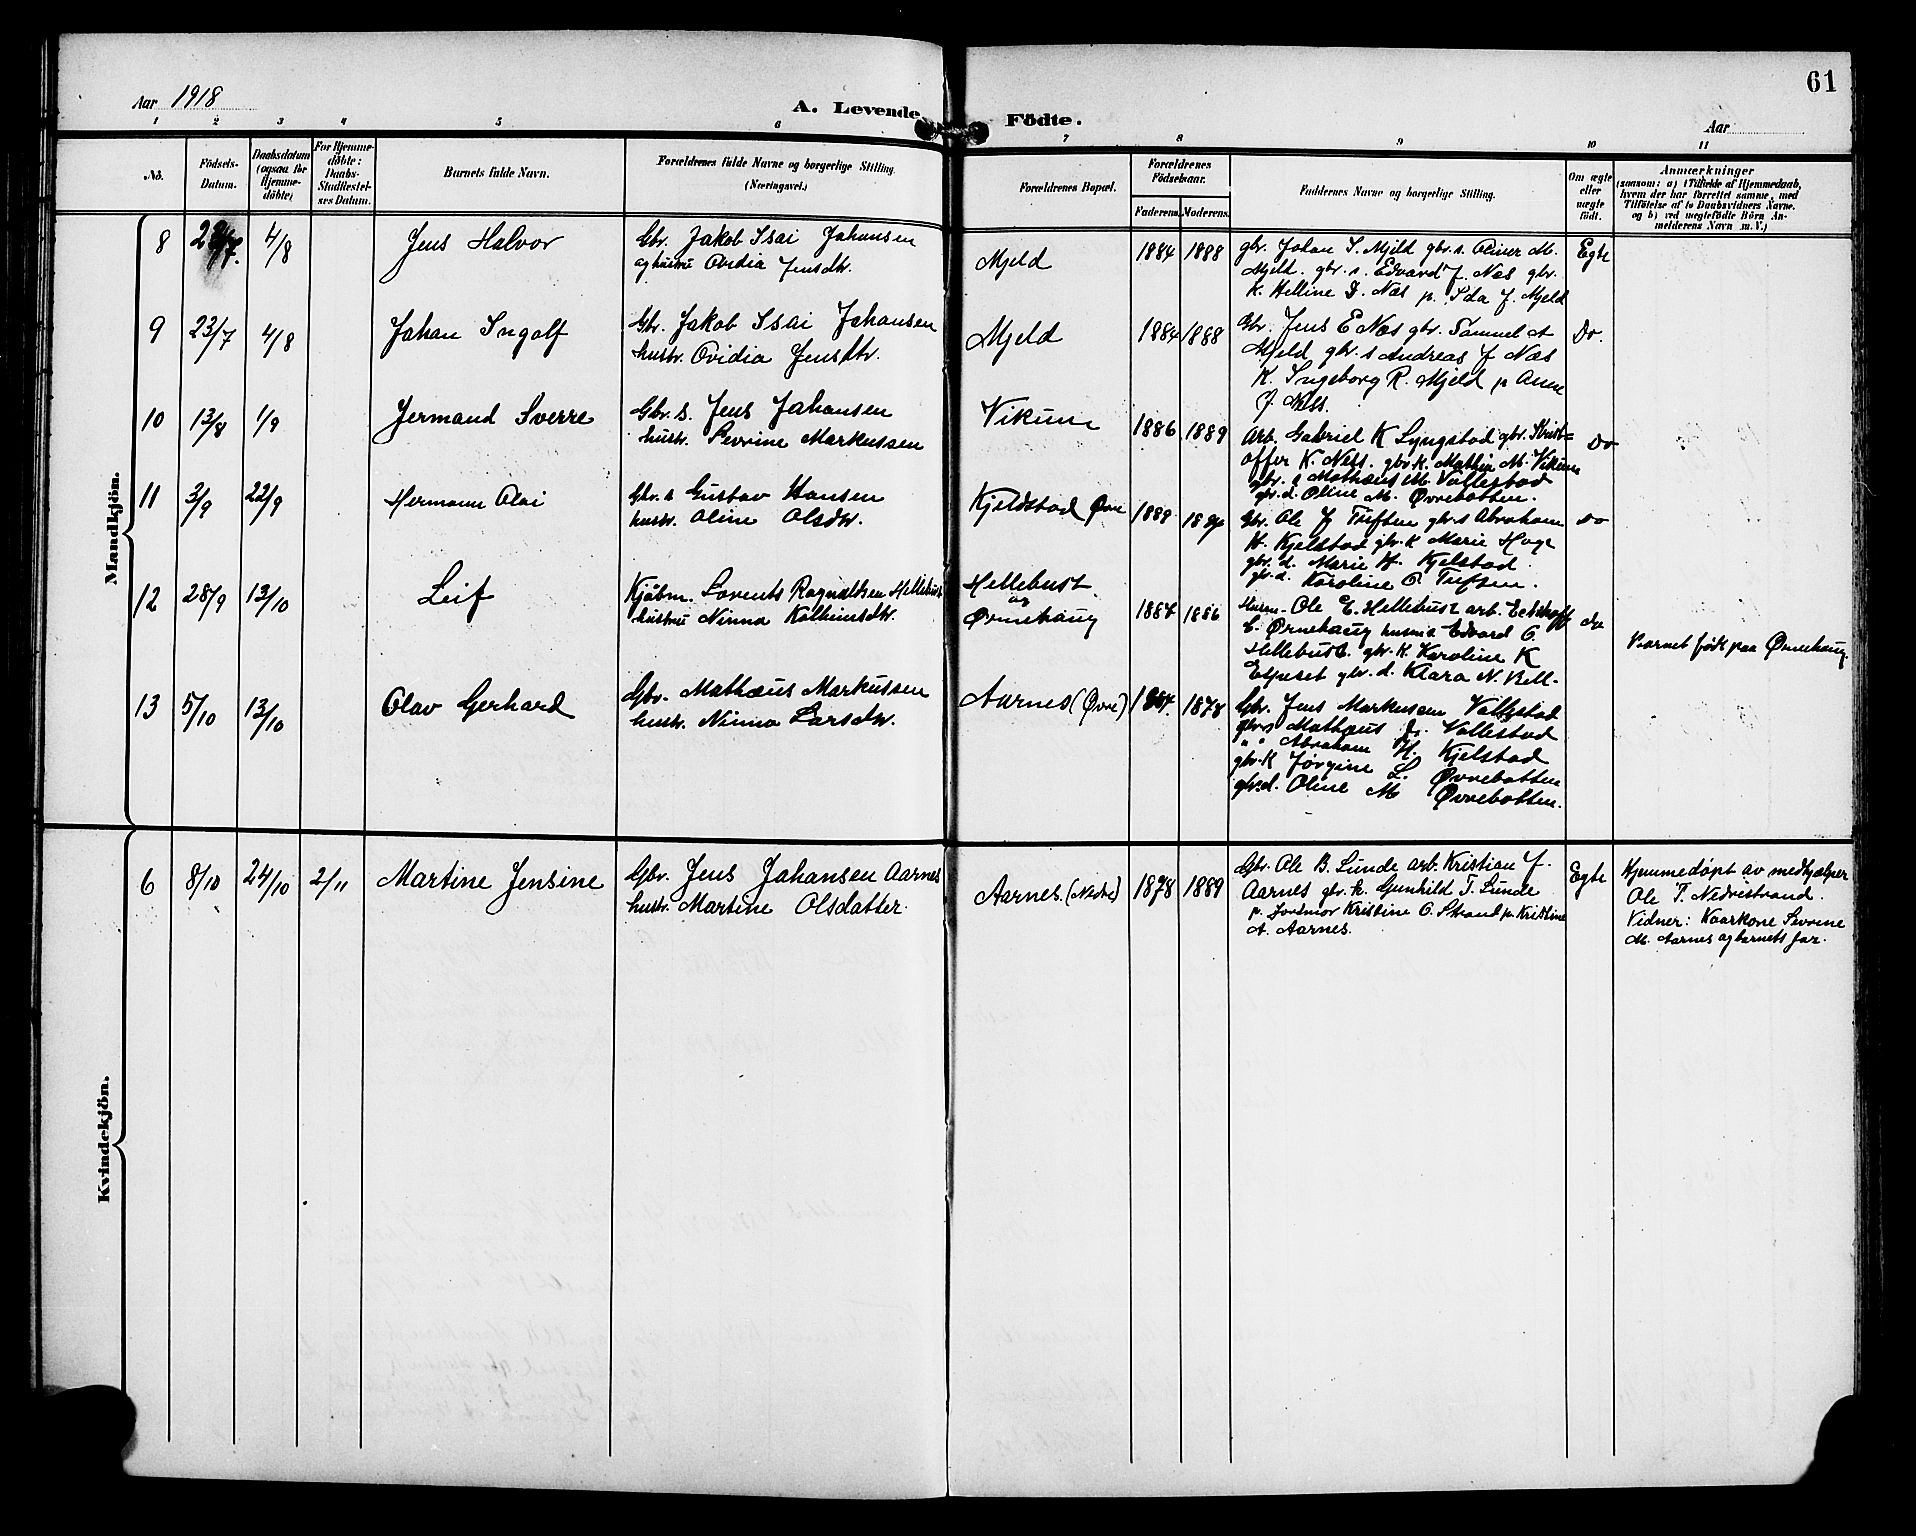 Aar 1918
A. Levende
Födte.
61
Aar
1 2 3 4 5 6 7 8 9 10 11
No.
Födsels-
Datum.
Daabsdatum
(ogsaa for
Hjemme-
döbte)
For Hjemme-
döbte:
Daabs-
Stadfæstel-
ses Datum.
Barnets fulde Navn.
Forældrenes fulde Navne og borgerlige Stilling
(Næringsvei.)
Forældrenes Bopæl.
Forældrenes
Födselsaar.
Faderens Moderens
Faddernes Navne og borgerlige Stilling.
Om ægte
eller
uægte
födt.
Anmærkninger
(saasom: a) i Tilfælde af Hjemmedaab,
hvem der har forrettet samme, med
Tilföielse af to Daabsvidners Navne.
og b) ved uægtefödte Börn An-
melderens Navn m. V.)
Mandkjön.
8 4/8 Jens Halvor
Gbr. Jakob Isai Johansen
og hustru Ovidia Jensdtr.
Mjeld 1884 1888
gbr. Johan I. Mjeld gbr.s. Oliver M.
Mjeld. gbr. s. Edvard J. Næs gbr.
k. Helline D. Næs p. Ida J. Mjeld
Egte
9 23/7 4/8 Johan Ingolf
Gbr. Jakob Isai Johansen
hustr. Ovidia Jensdtr.
Mjeld 1884 1888
Gbr. Jens E Næs gbr. Samuel A
Mjeld gbr. s Andreas J Næs
K. Ingeborg R. Mjeld p Anne
J. Ness.
Do.
10 13/8 1/9 Jermand Sverre
Gbr. s. Jens Johansen
hustr. Sevrine Markussen
Vikum 1886 1889
Arb. Gabriel K Lyngstad gbr. Krist-
offer K. Ness. gbr k. Mathie M. Vikum
gbr. s Mathæus M. Vallestad
gbr. d. Oline M. Øvrebotten.
Do
11 3/9 22/9 Hermann Olai
Gbr. s Gustav Hansen
hustr. Oline Olsdtr.
Kjeldstad Øvre
Gbr. Ole J Tufsen gbr. s Abraham
H. Kjelstad gbr. k Marie Hage
gbr. d. Marie H. Kjelstad.
gbr. d. Karoline O. Tufsen.
Do
12 28/9 13/10 Leif
Kjøbm. Lorents Ragnaldsen Hellebust
hustru Ninna
Hellebust
og
Ørnehaug
1884 1886
Ole E. Hellebust arb.
E. Ørnehaug husm.s Edvard O.
Hellebust. gbr. K. Karoline K
gbr. d. Klara N.
do
Barnet født paa Ørnehaug.
13 5/10 13/10 Olav Gerhard
Gbr. Mathæus Markussen
hustr. Ninna Larsdtr.
Aarnes (Øvre) 1878
Gbr. Jens Markussen Vallestad
gbr. s Mathæus J. Vallestad
" " Abraham H. Kjelstad
gbr. k Jørgine L. Øvrebotten
gbr. d. Oline M Øvrebotten.
Kvindekjön.
6 8/10 24/10 2/11 Martine Jensine
Gbr. Jens Johansen Aarnes
hustr. Martine Olsdatter.
Aarnes. (Nedre) 1878 1889
Gbr. Ole B. Lunde arb. Kristian J.
Aarnes gbr. k. Gunhild T. Lunde
p. Jordmor Kristine O. Strand p. Kristine
A. Aarnes.
Egte
Hjemmedøpt av medhjælper
Ole T. Nedrestrand.
Vidner: Kaarkone Sevrine
M. Aarnes og barnets far.